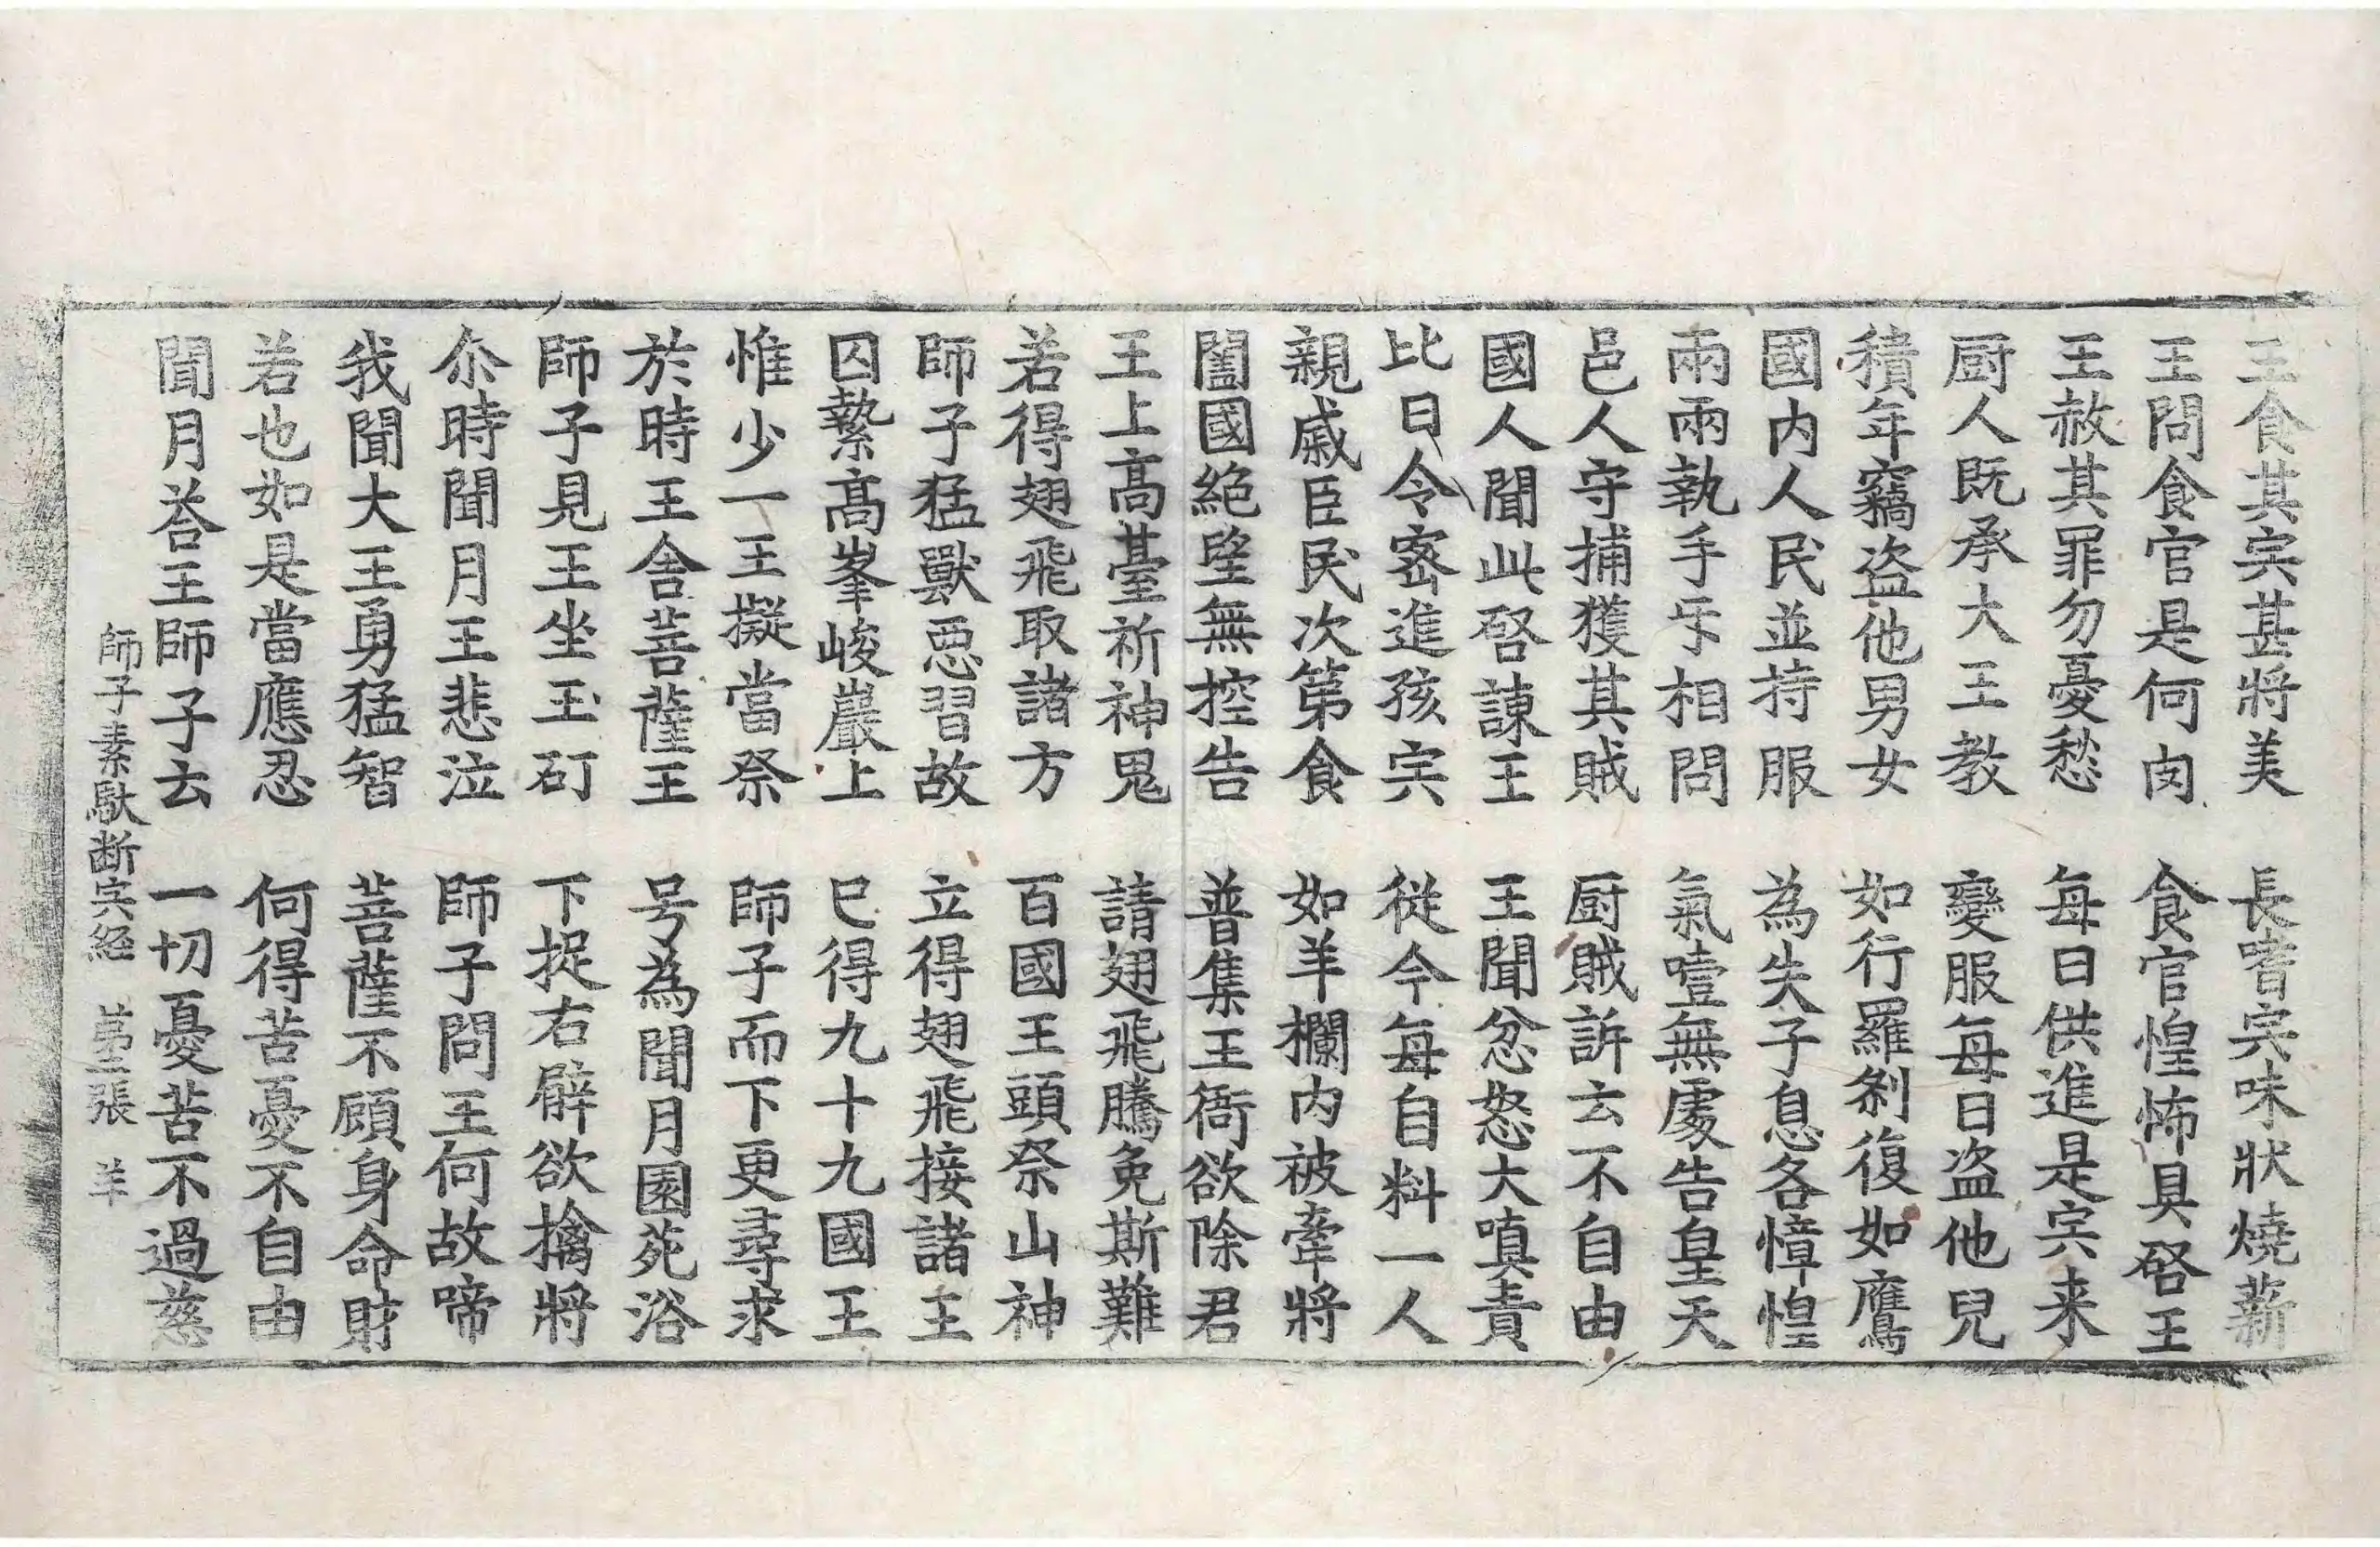 王食其宍甚將美　長嗜宍味狀燒薪
王問食官是何肉　食官惶怖具啓王
王赦其罪勿憂愁　每日供進是宍来
厨人既承大王教　變服每日盗他兒
積年竊盗他男女　如行羅刹復如鷹
國内人民並持服　為失子息各慞惶
兩兩執手乐相問　氣噎無處告皇天
邑人守捕獲其賊　厨賊訴云不自由
國人聞此啓諫王　王聞忿怒大嗔責
比日令密進孩宍　從今每自料一人
親戚臣民次第食　如羊欄内被牽將
闔國絶望無控告　普集王衙欲除君
王上高臺祈神鬼　請翅飛騰免斯難
若得翅飛取諸方　百國王頭祭山神
師子猛獸惡習故　立得翅飛接諸王
囚縶高峯峻巖上　已得九十九國王
惟少一王擬當祭　師子而下更尋求
於時王舍菩薩王　号為聞月園苑浴
師子見王坐玉矴　下捉右臂欲擒將
尒時聞月王悲泣　師子問王何故啼
我聞大王勇猛智　菩薩不顧身命財
若也如是當應忍　何得苦憂不自由
聞月荅王師子云　一切憂苦不過慈
師子素馱断宍經　第三張　羊